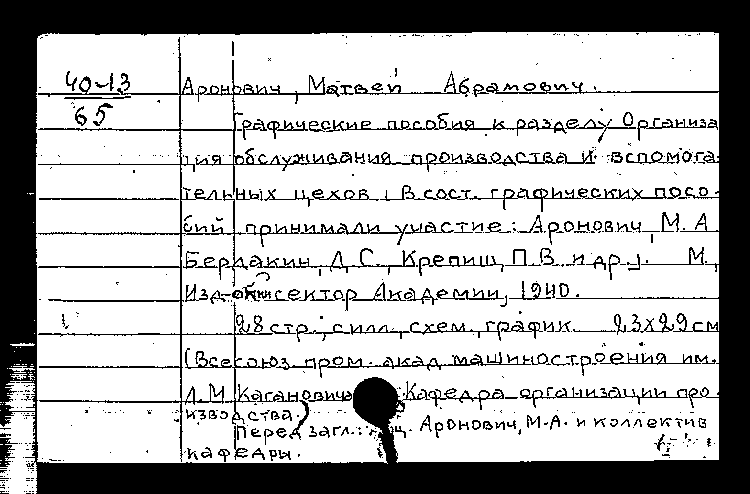 40-13
65
Аронович, Матвей Абрамович.
Графические пособия к разделу Организа
ция обслуживания производства и вспомога-
тельных цехов. В сост. графических посо-
бий принимали участие: Аронович, М. А
Бердакин, Д. С., Крепиш, П. В. и др.]. М.,
Изд-сектор Академии, 1940.
28 стр., с илл., схем., график. 23х29 см
(Всесоюз. пром. акад. машиностроения им.
Л. М. Кагановича Кафедра организации про-
изводства.)
Перед загл.: Аронович, М.А. и коллектив
кафедры.